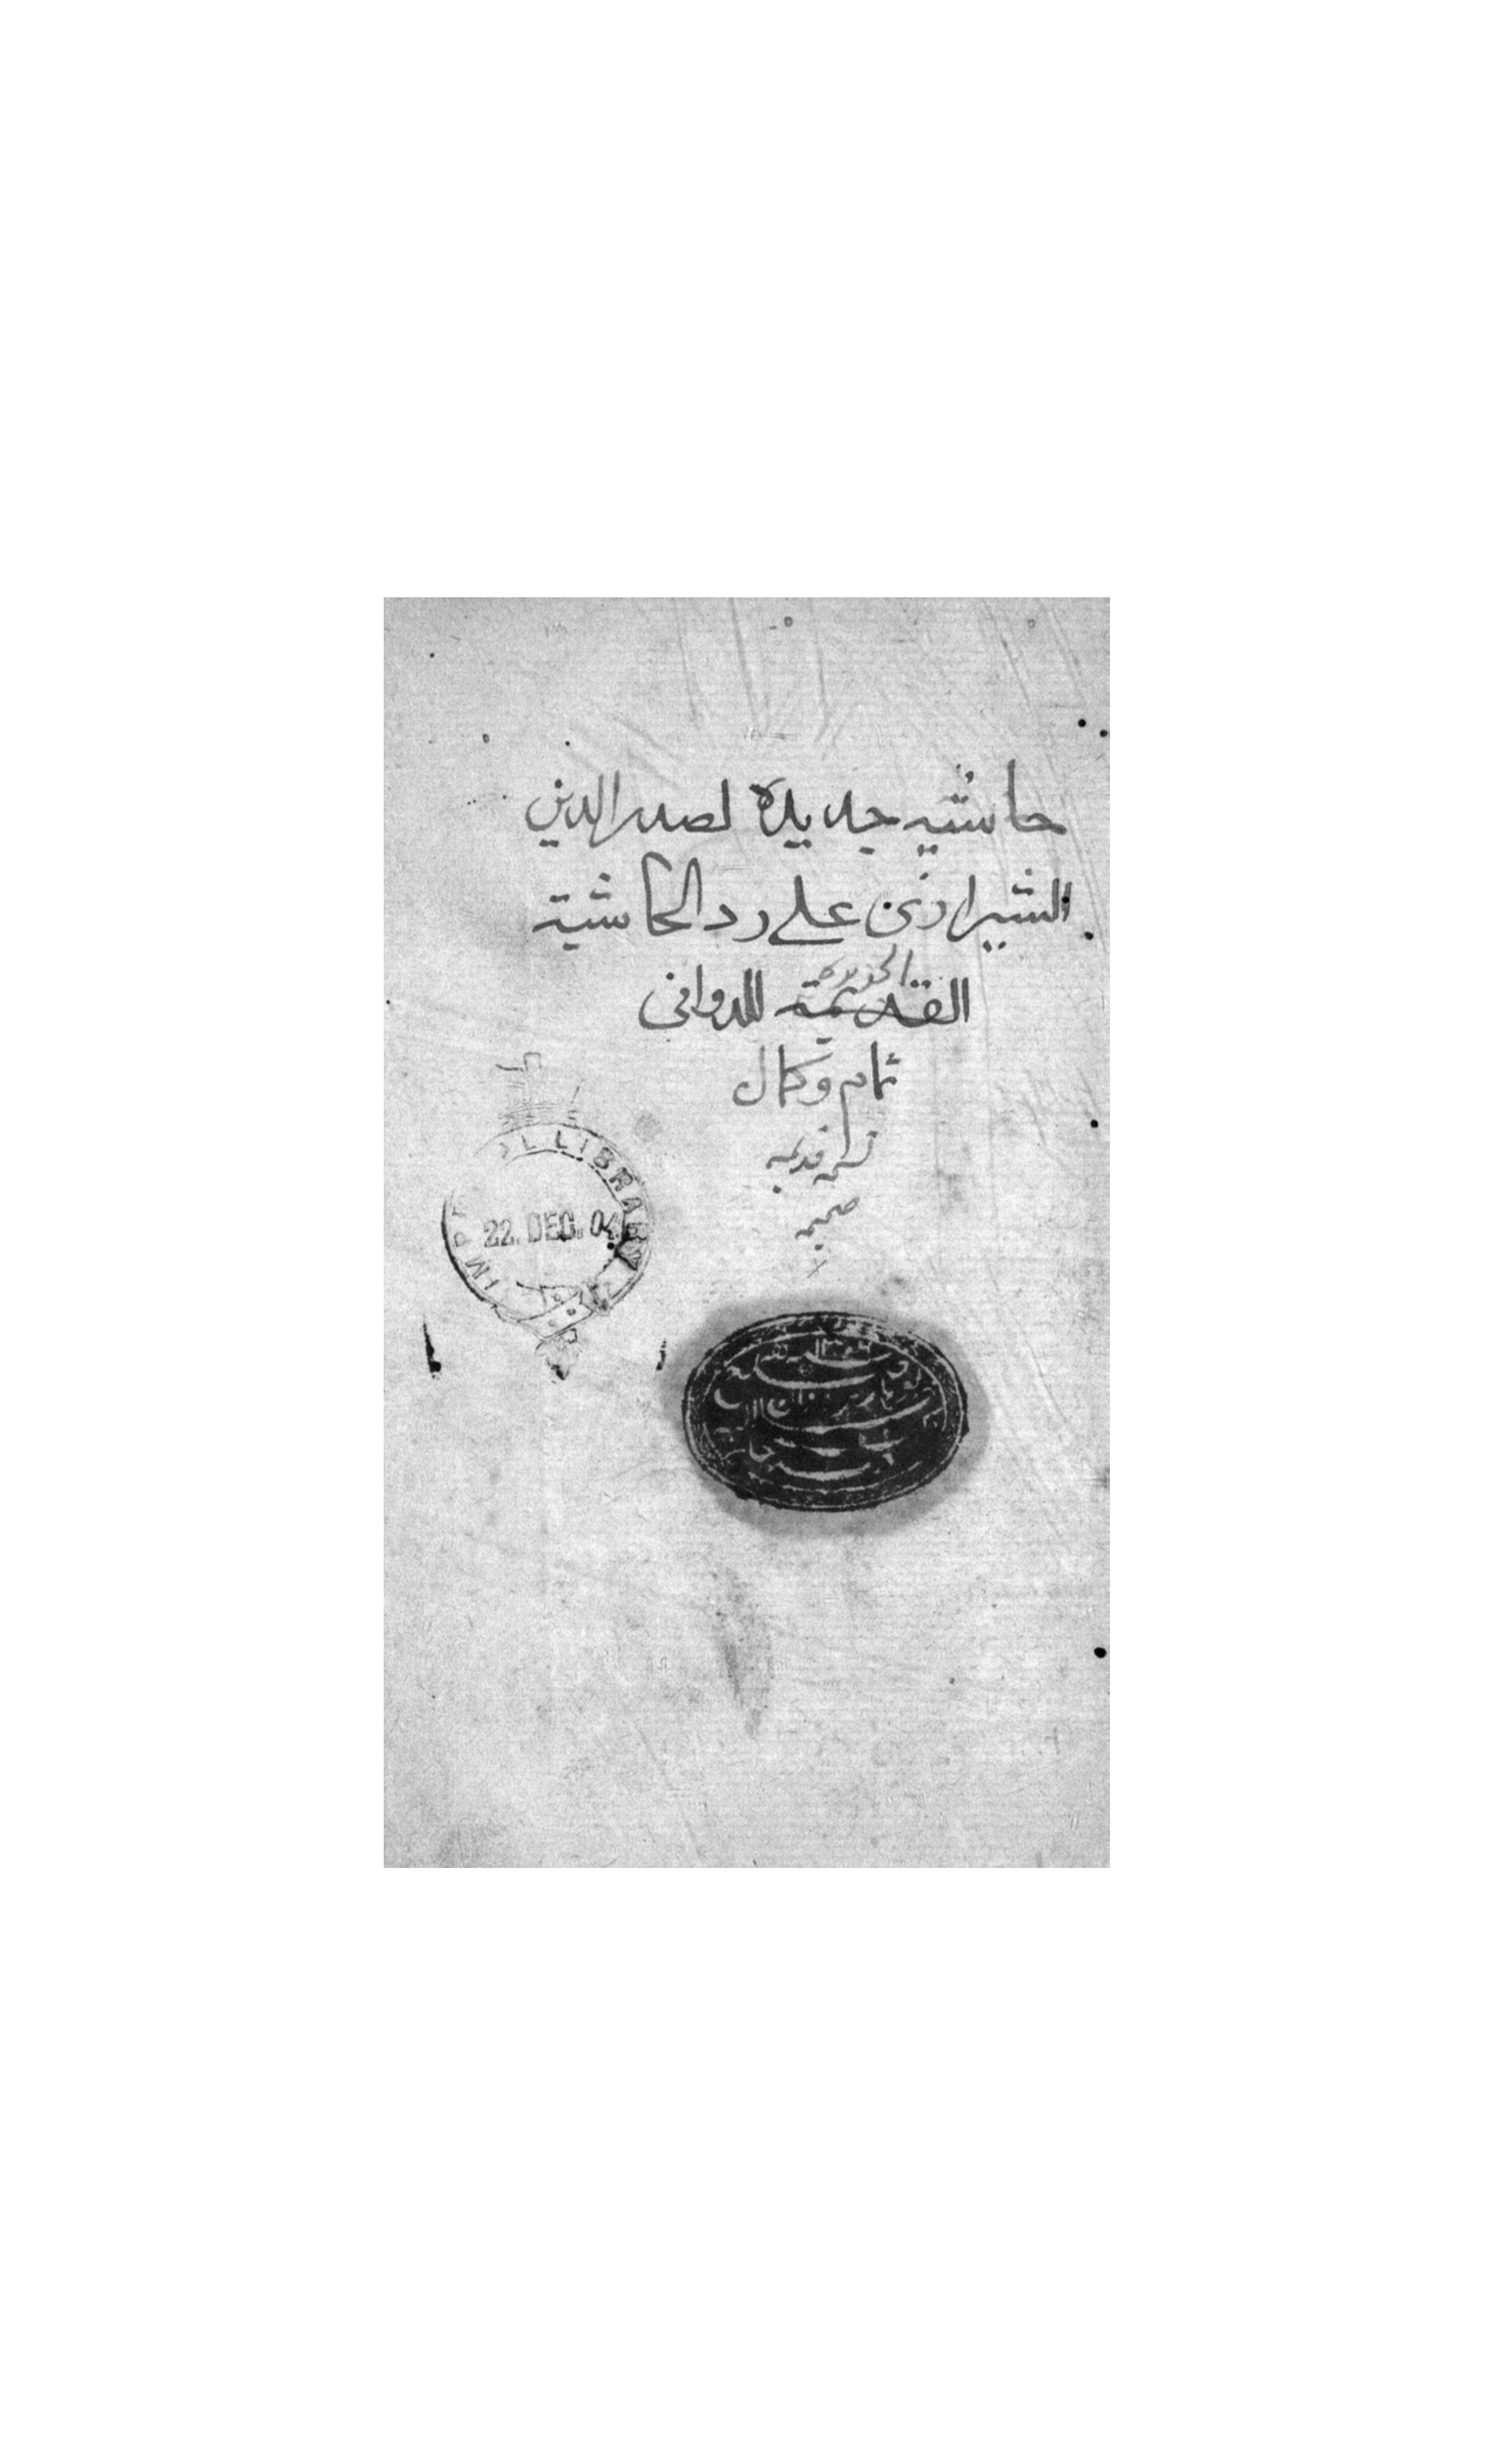 حاشيه جديده لصدر الدين
الشيرازى على رد الحاشية
الجديدة
القديمة للدوانى
تمام وكمال
نسخه قديمه
صحيحه
LIBRARY
22. DEC. 04